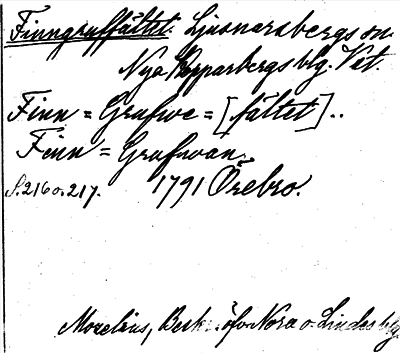 Finngruffältet. Ljusnarsbergs sn.
Nya Kopparbergs blg. Vst.
Finn = Grufwe = [fältet]..
Finn = Grufwan.
S. 216 o. 217. 1791 Örebro.
Morelius, Besk. öfv. Nora o. Lindes blg.